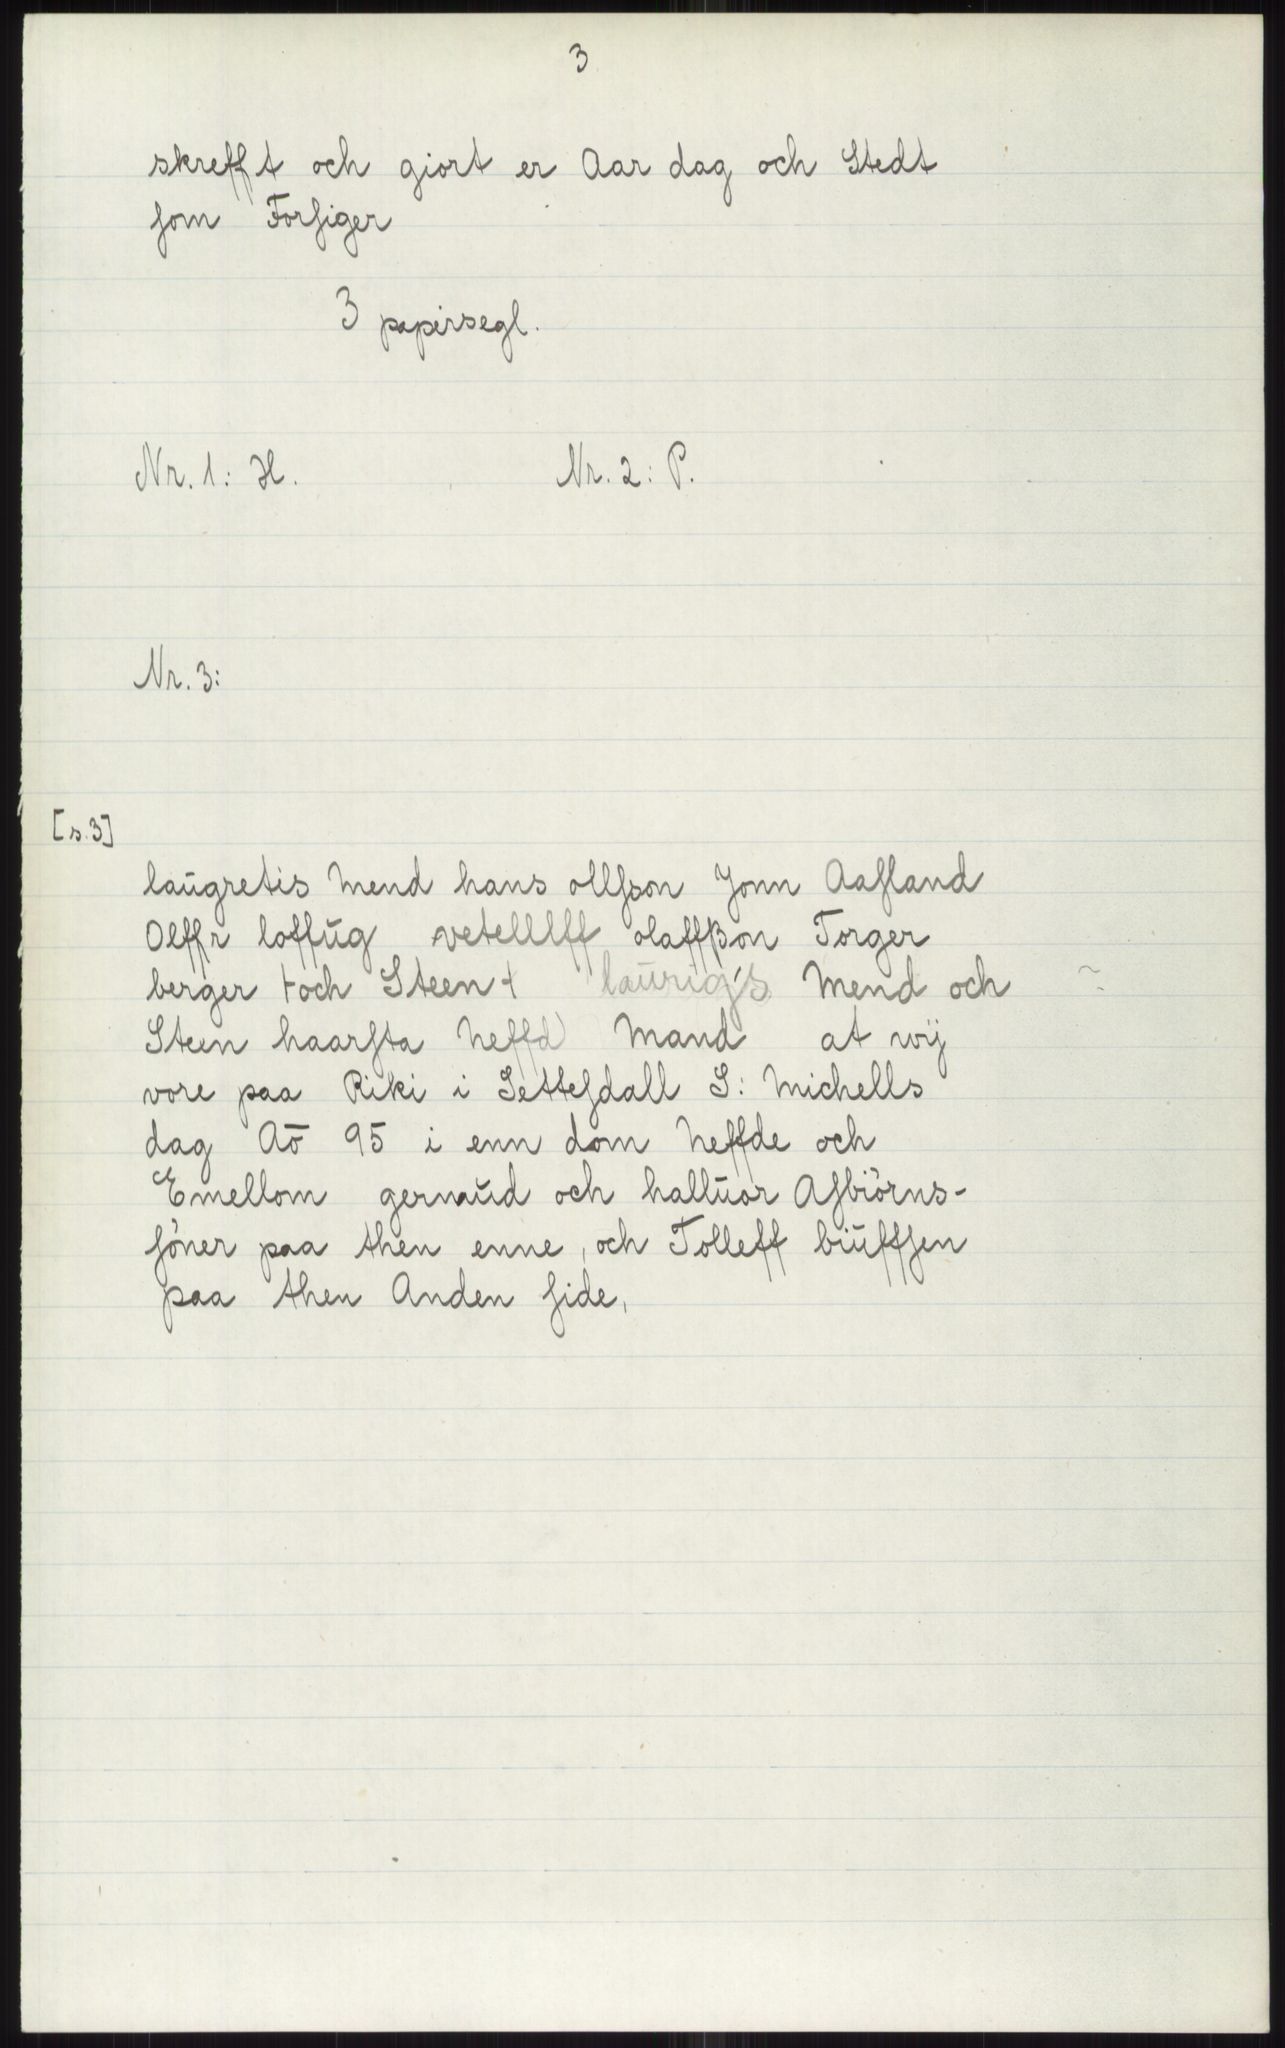 3
skrefft och giort er Aar dag och Stedt
ſom Forſiger
3 papirsegl.
Nr. 1: H. Nr. 2: P.
Nr. 3:
[s. 3]
laŭgretis Mend hans ollſson Jonn Aaſland
Olffr loffŭg vetelllff olaffßon Torger
berger + och Steen + laŭrig's Mend och ~
Steen haarſta Neffd) Mand at wij
vore paa Riki i Setteſdall S: Michells
dag Aō 95 i enn dom Neffde och
Emellom gernaŭd och hallŭor Aſbiörns-
ſöner paa then enne, och Tolleff biŭffſen
paa then Anden ſide,